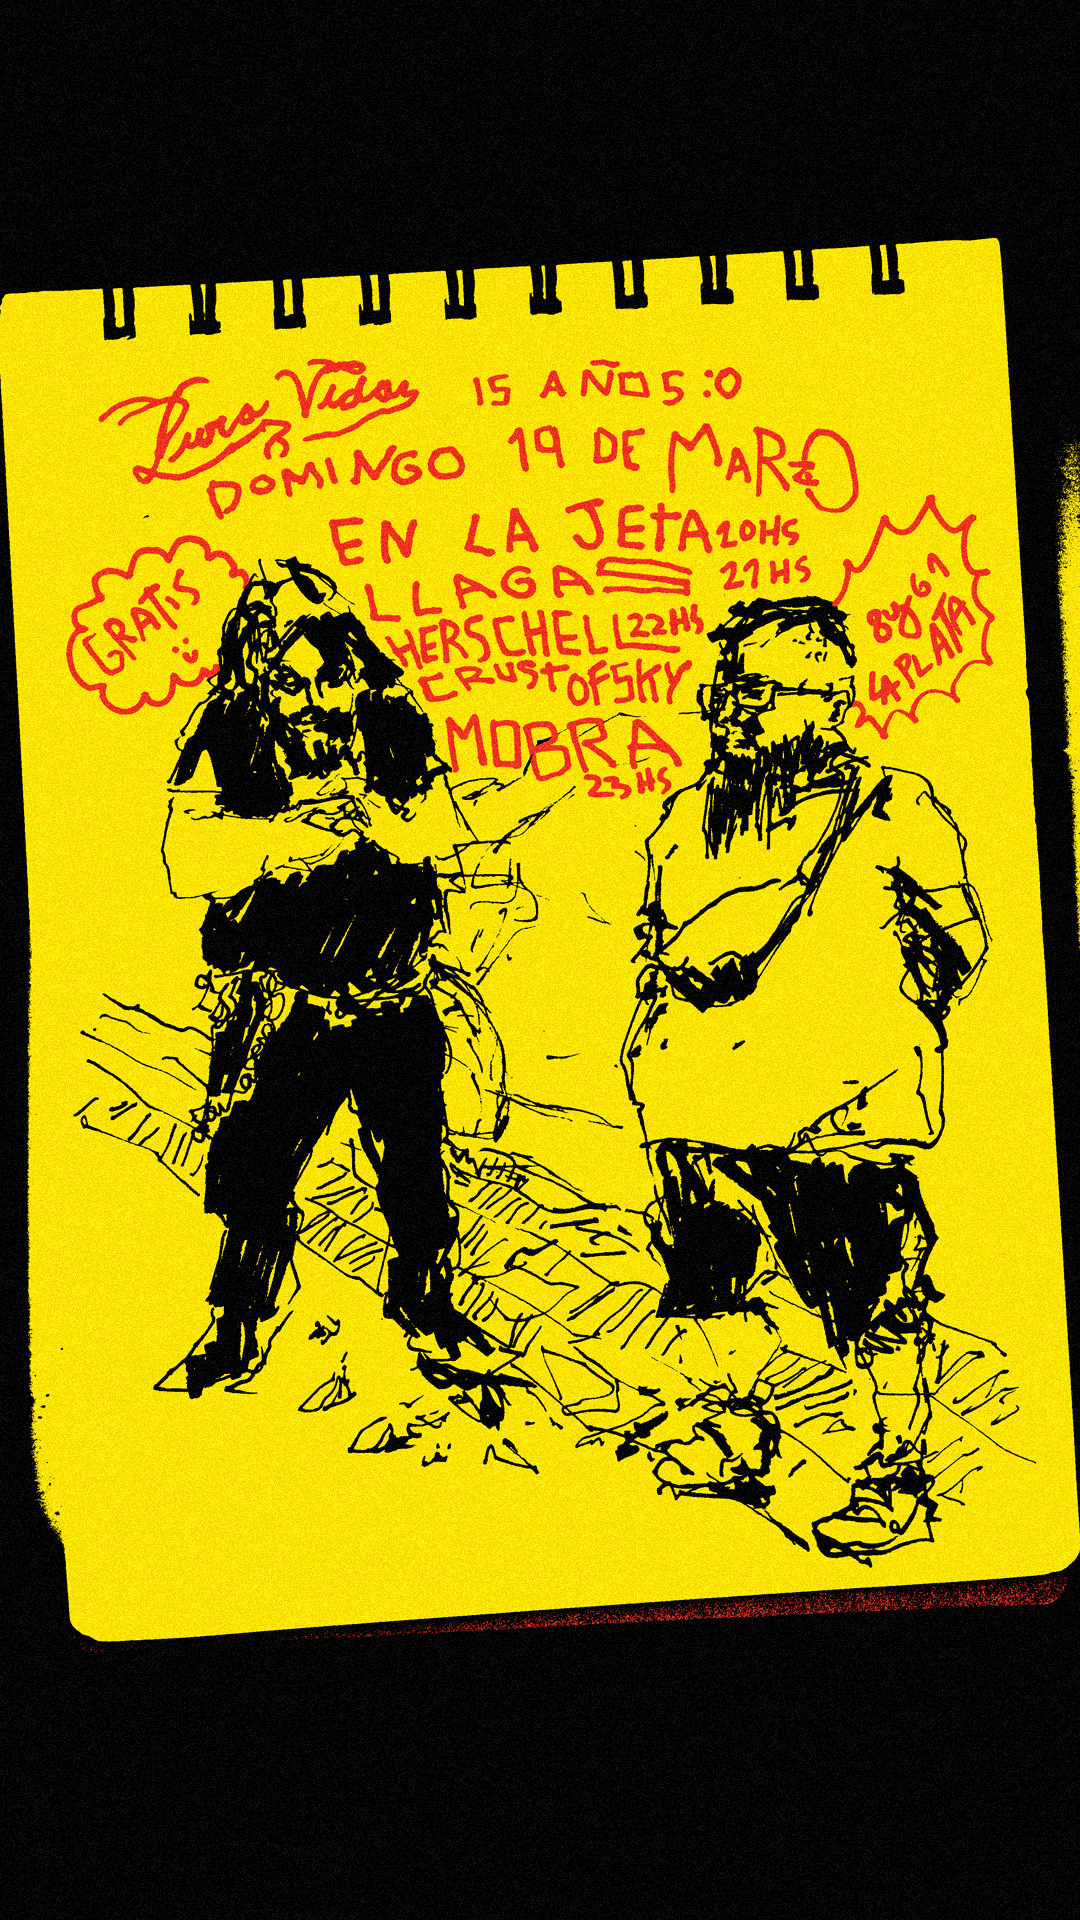 Lura Vidas 15 AÑOS :O
DOMINGO 19 DE MARZO
EN LA JETA 20HS
LLAGA 21HS
HERSCHELL 22HS
CRUST OF SKY
MOBRA
23HS
GRATIS
:)
8 y 61
LA PLATA